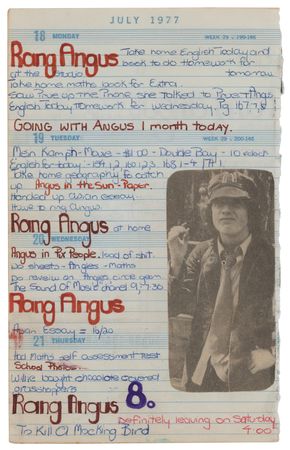 JULY 1977
18 MONDAY
WEEK 29 - 199-166
Rang Angus
Take home English Today and
book to do Homework for
at the Studio
tomorrow
Take home maths book for Extra
Saw True up The Phone, she talked to
English Today Homework for Wednesday. Pg 167
GOING WITH ANGUS 1 month today.
19 TUESDAY
WEEK 29 - 200-165
Mein Kampf - Movie - $1.00 - Double Bay - 10 o'clock
English for today
Take home geography to catch
up
Angus in the Sun - Paper.
Handed up Asian essay.
to ring Angus.
Rang Angus at home
20 WEDNESDAY
Angus in for People. load of shit.
Do sheets - Angles - Maths
Do review on Angus circle gram
The Sound Of Music channel 9, 7.30
Rang Angus
Asian Essay = 16/20
21 THURSDAY
Had Maths self assessment test
School Photos
Willie bought chocolate covered
grasshoppers
Rang Angus 8.
Definitely leaving on Saturday
4.00
To Kill A Mocking Bird